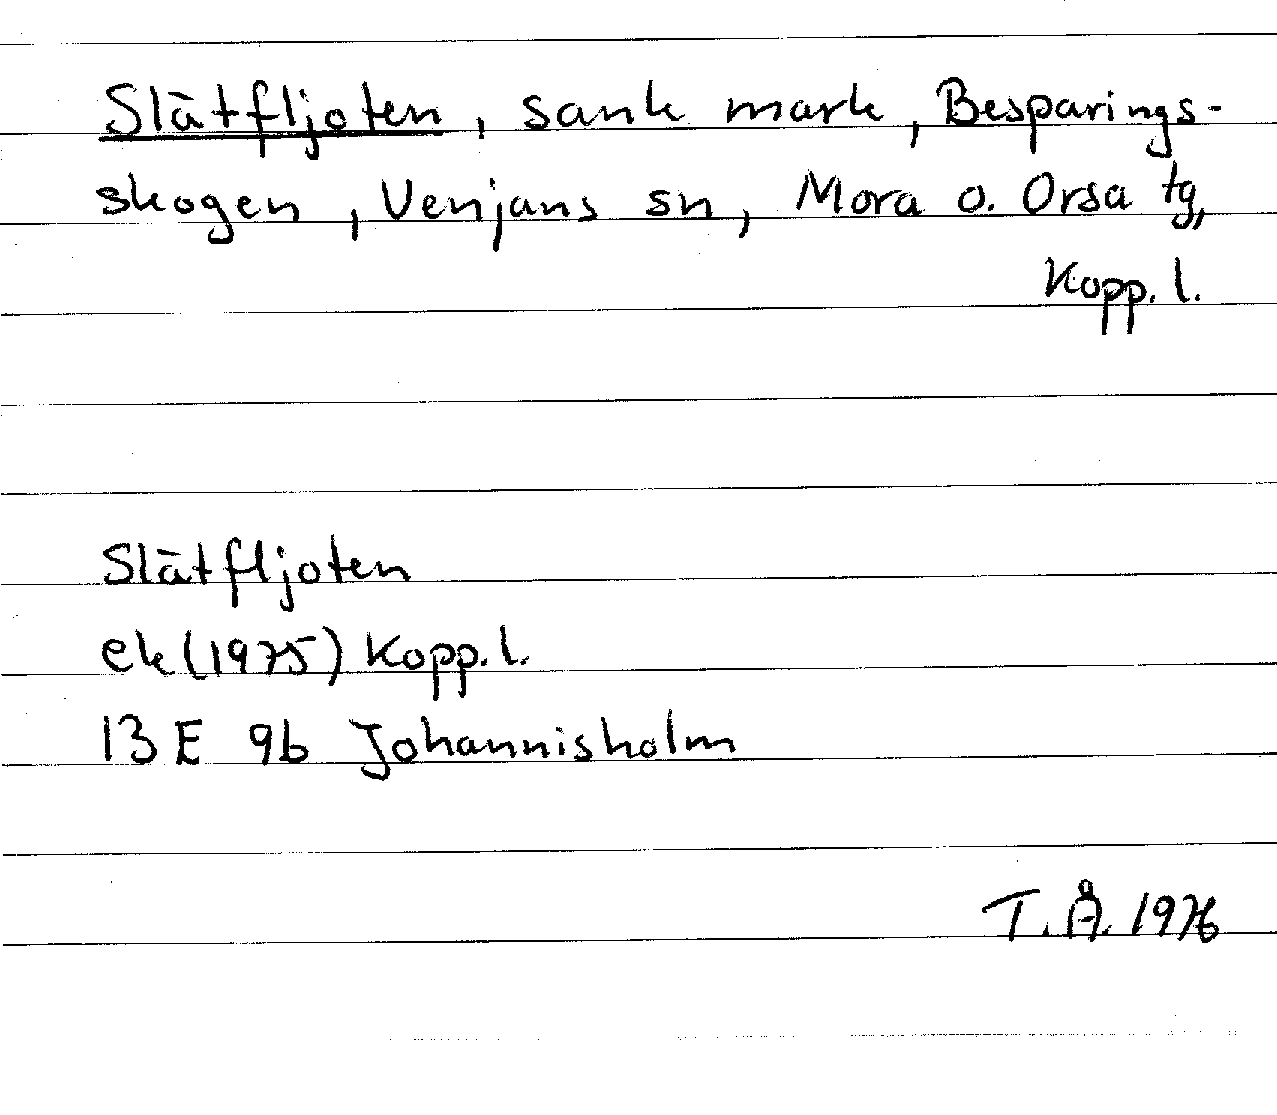 Slätfljoten, sank mark, Besparings-
skogen, Venjans sn, Mora o. Orsa tg,
Kopp. l.
Slätfljoten
ek (1975) Kopp. l.
13 E 9b Johannisholm
T. Å. 1976